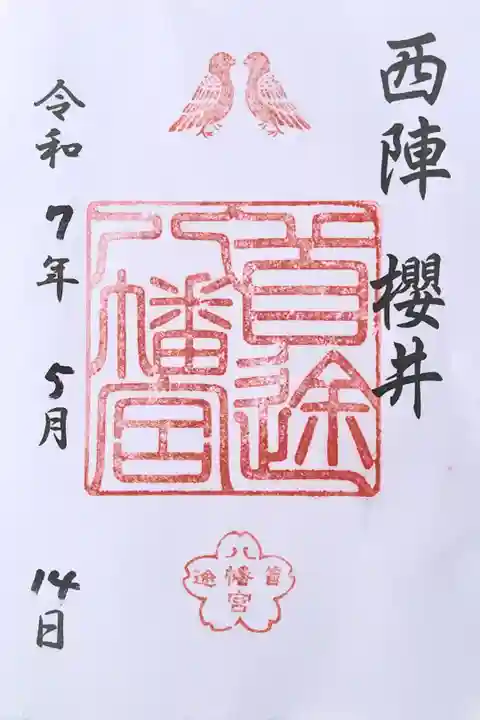 西陣 櫻井
首途
八幡宮
八
幡
宮
首
途
令和 7年 5月 14日